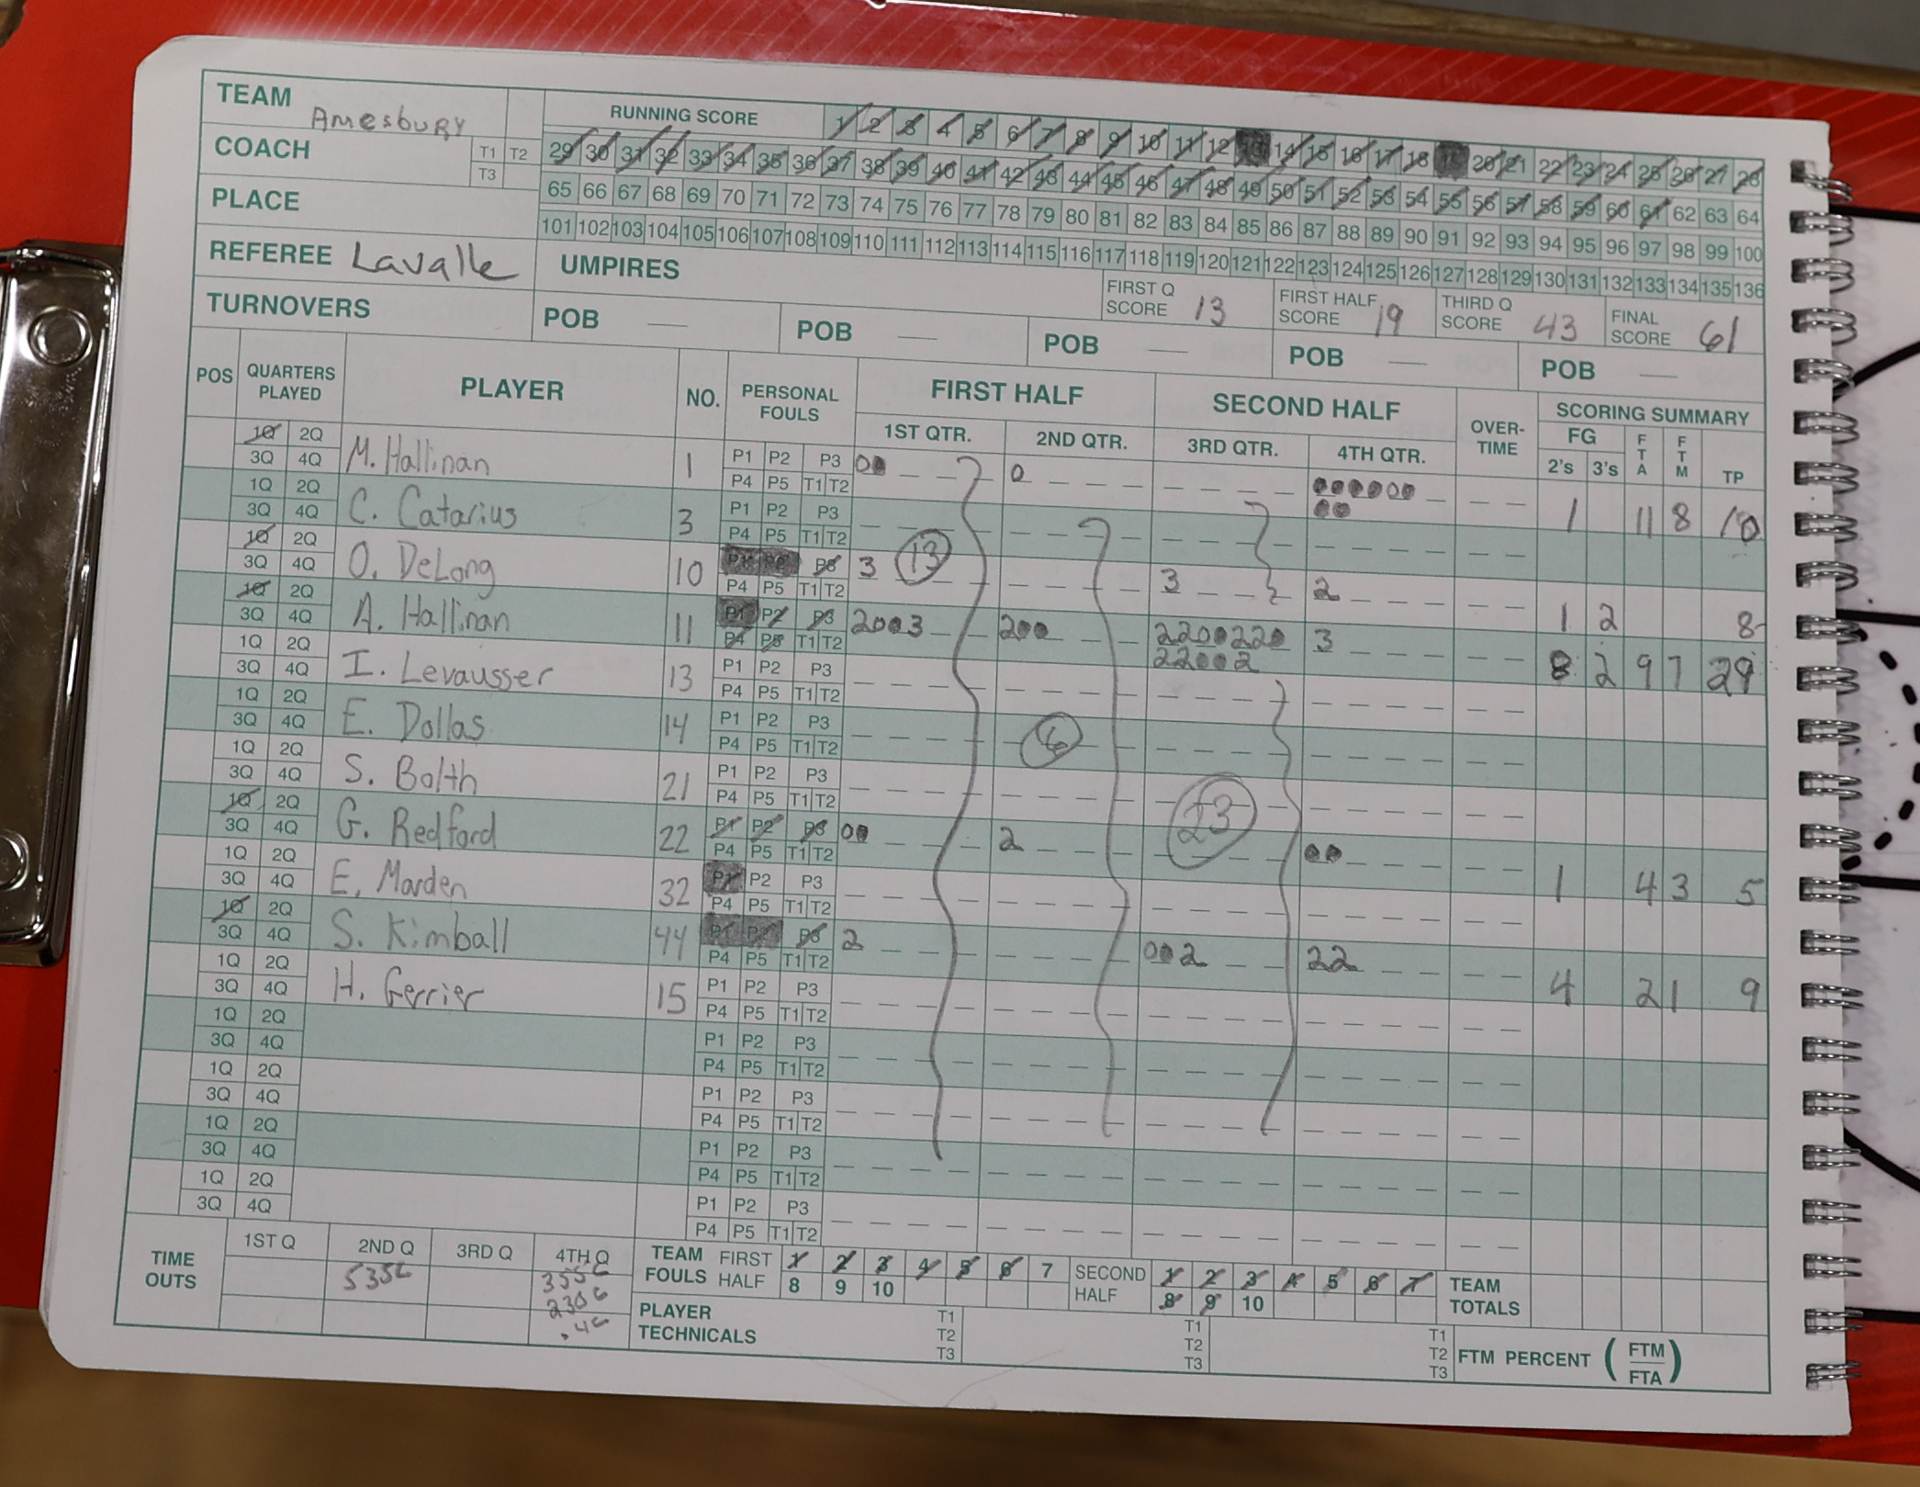 TEAM Amesbury
RUNNING SCORE 1 2 3 4 5 6 7 8 9 10 11 12 13 14 15 16 17 18 19 20 21 22 23 24 25 26 27 28
COACH T1 T2 T3
29 30 31 32 33 34 35 36 37 38 39 40 41 42 43 44 45 46 47 48 49 50 51 52 53 54 55 56 57 58 59 60 61 62 63 64
PLACE
65 66 67 68 69 70 71 72 73 74 75 76 77 78 79 80 81 82 83 84 85 86 87 88 89 90 91 92 93 94 95 96 97 98 99 100
101 102 103 104 105 106 107 108 109 110 111 112 113 114 115 116 117 118 119 120 121 122 123 124 125 126 127 128 129 130 131 132 133 134 135 136
REFEREE Lavalle UMPIRES
FIRST Q SCORE 13 FIRST HALF SCORE 19 THIRD Q SCORE 43 FINAL SCORE 61
TURNOVERS POB POB POB POB POB
POS QUARTERS PLAYED PLAYER NO. PERSONAL FOULS FIRST HALF SECOND HALF OVER-TIME SCORING SUMMARY
1ST QTR. 2ND QTR. 3RD QTR. 4TH QTR. FG 2's 3's FTA FTM TP
1Q 2Q 3Q 4Q M. Hallinan 1 P1 P2 P3 P4 P5 T1 T2 00 0 00000000 1 11 8 10
1Q 2Q 3Q 4Q C. Catarius 3 P1 P2 P3 P4 P5 T1 T2
1Q 2Q 3Q 4Q O. DeLong 10 P1 P2 P3 P4 P5 T1 T2 3 13 3 2 1 2 8
1Q 2Q 3Q 4Q A. Hallinan 11 P1 P2 P3 P4 P5 T1 T2 2003 200 2200220 22002 3 8 2 9 7 29
1Q 2Q 3Q 4Q I. Levausser 13 P1 P2 P3 P4 P5 T1 T2
1Q 2Q 3Q 4Q E. Dollas 14 P1 P2 P3 P4 P5 T1 T2 6
1Q 2Q 3Q 4Q S. Bolth 21 P1 P2 P3 P4 P5 T1 T2 23
1Q 2Q 3Q 4Q G. Redford 22 P1 P2 P3 P4 P5 T1 T2 00 2 00 1 4 3 5
1Q 2Q 3Q 4Q E. Marden 32 P1 P2 P3 P4 P5 T1 T2
1Q 2Q 3Q 4Q S. Kimball 44 P1 P2 P3 P4 P5 T1 T2 2 002 22 4 2 1 9
1Q 2Q 3Q 4Q H. Gerrier 15 P1 P2 P3 P4 P5 T1 T2
1Q 2Q 3Q 4Q P1 P2 P3 P4 P5 T1 T2
1Q 2Q 3Q 4Q P1 P2 P3 P4 P5 T1 T2
1Q 2Q 3Q 4Q P1 P2 P3 P4 P5 T1 T2
1Q 2Q 3Q 4Q P1 P2 P3 P4 P5 T1 T2
TIME OUTS 1ST Q 2ND Q 3RD Q 4TH Q
TEAM FOULS FIRST HALF 1 2 3 4 5 6 7 8 9 10 SECOND HALF 1 2 3 4 5 6 7 8 9 10 TEAM TOTALS
PLAYER TECHNICALS T1 T2 T3 T1 T2 T3 T1 T2 T3 FTM PERCENT (FTM FTA)